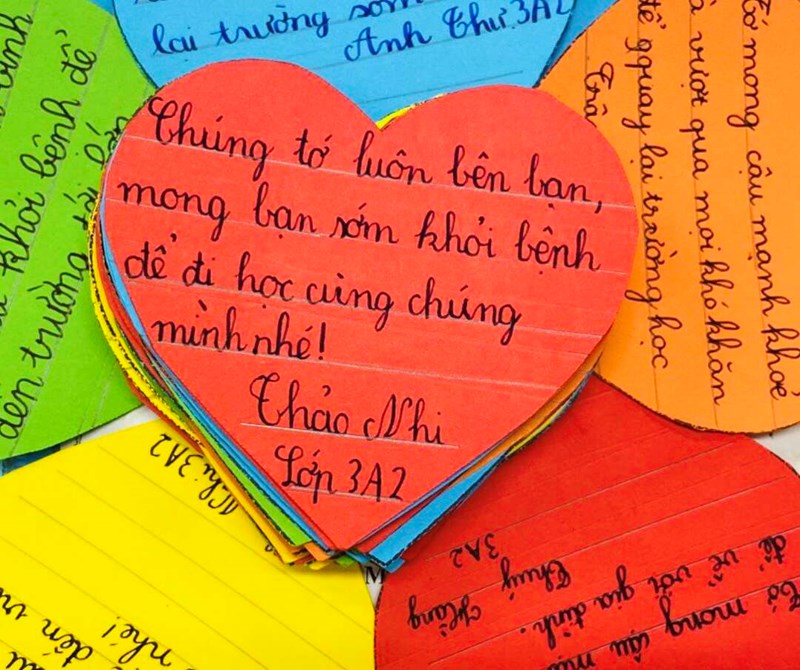 lại trường sớm
Anh Thư 3A2
Chúng tớ luôn bên bạn,
mong bạn sớm khỏi bệnh
để đi học cùng chúng
mình nhé!
Thảo Nhi
Lớp 3A2
khỏi bệnh để
đến trường
Tớ mong cậu mạnh khoẻ
vượt qua mọi khó khăn
để quay lại trường học
Nhi 3A2
đến
nhé!
Tớ mong cậu
để về với gia đình.
Hằng Thúy
3A2